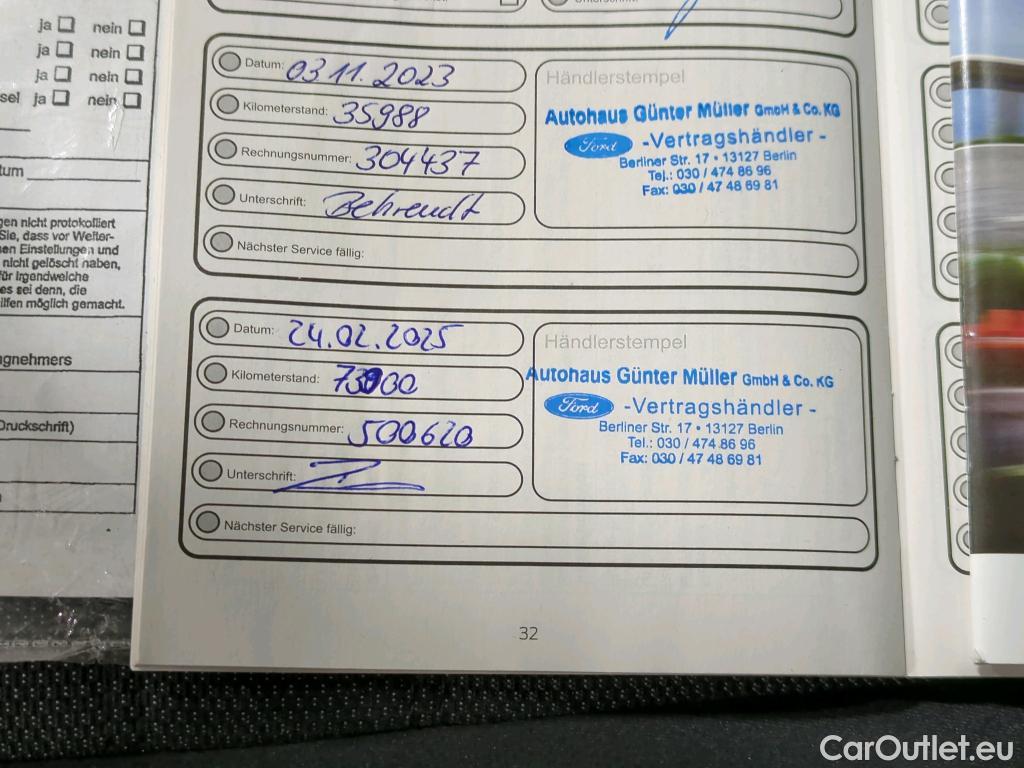 ja nein
ja nein
ja nein
sel ja nein
tum
gen nicht protokolliert
Sie, dass vor Weiter-
en Einstellungen und
nicht gelöscht haben,
für irgendwelche
es sei denn, die
ilfen möglich gemacht.
gnehmers
Druckschrift)
Datum: 03 11.2023
Kilometerstand: 35988
Rechnungsnummer: 304437
Unterschrift: Behrendt
Nächster Service fällig:
Händlerstempel
Autohaus Günter Müller GmbH & Co. KG
Ford -Vertragshändler-
Berliner Str. 17 • 13127 Berlin
Tel.: 030 / 474 86 96
Fax: 030 / 47 48 69 81
Datum: 24.02.2025
Kilometerstand: 73000
Rechnungsnummer: 500620
Unterschrift:
Nächster Service fällig:
Händlerstempel
Autohaus Günter Müller GmbH & Co. KG
Ford -Vertragshändler-
Berliner Str. 17 • 13127 Berlin
Tel.: 030 / 474 86 96
Fax: 030 / 47 48 69 81
32
CarOutlet.eu